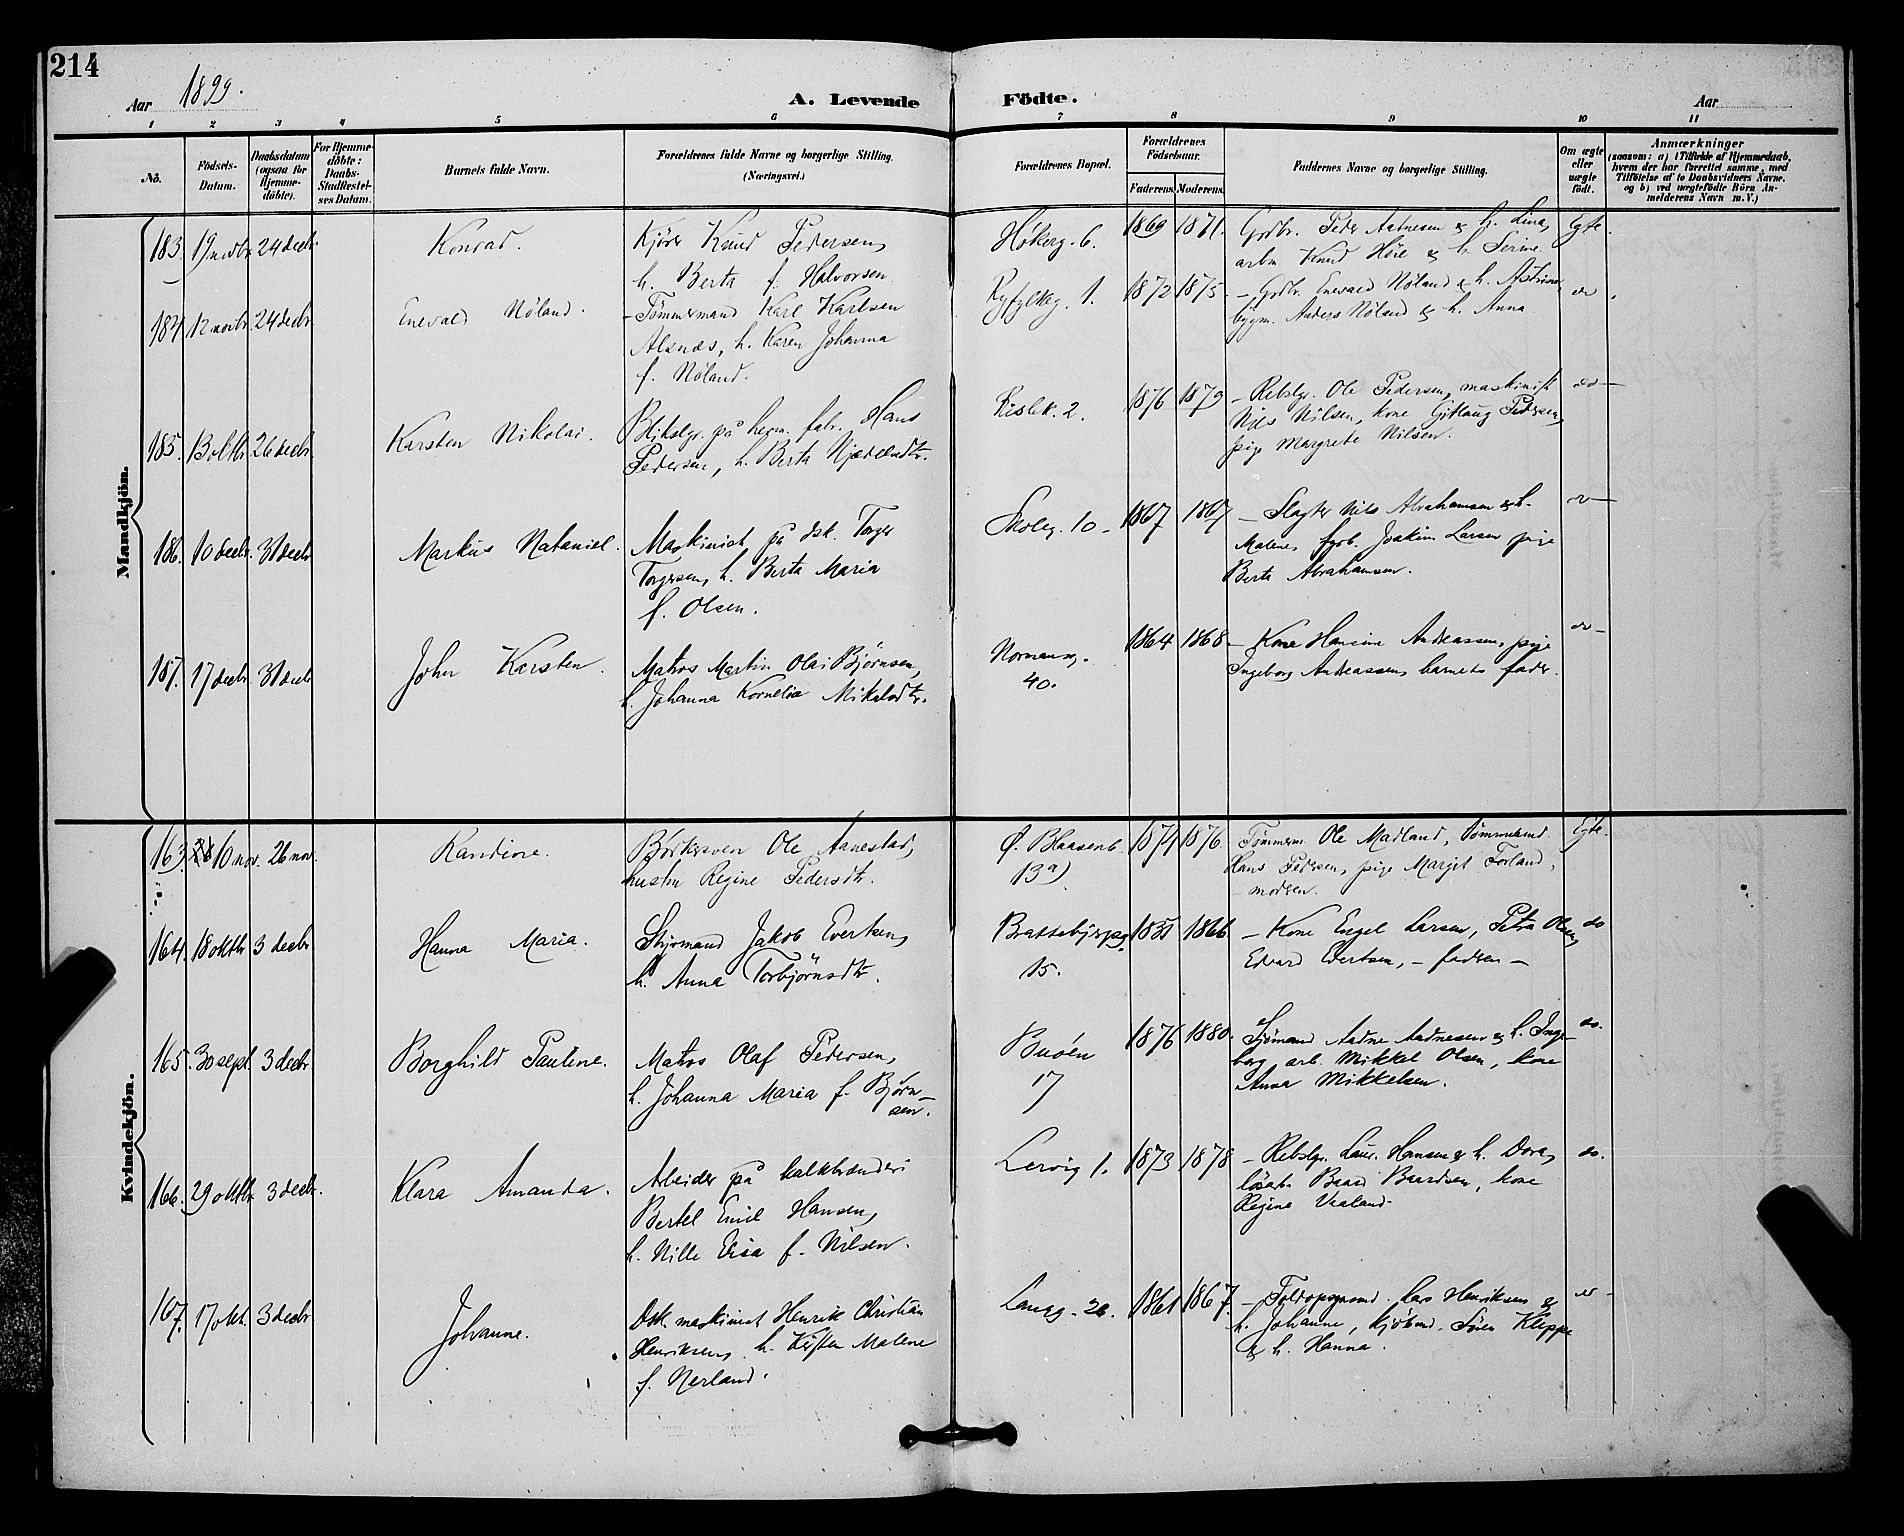 214
Aar 1899.
A. Levende Födte.
Aar
1 2 3 4 5 6 7 8 9 10 11
No.
Födsels-Datum.
Daabsdatum (ogsaa for Hjemme-döbte).
For Hjemme-döbte: Daabs-Stadfæstel-ses Datum.
Barnets fulde Navn.
Forældrenes fulde Navne og borgerlige Stilling.
(Næringsvei.)
Forældrenes Bopæl.
Forældrenes Födselsaar.
Faderens. Moderens.
Faddernes Navne og borgerlige Stilling.
Om ægte eller uægte födt.
Anmærkninger
(saasom: a) i Tilfælde af Hjemmedaab, hvem der har forrettet samme, med Tilföielse af to Daabsvidners Navne. og b) ved uægtefödte Börn Anmelderens Navn m.V.)
Mandkjön.
183. 19 novbr. 24 decbr. Konrad. Kjörer Knud Pedersen,
h. Berta f. Halvorsen
Høkerg. 6. 1869 1871. Grdbr. Peder Aatnesen & h. Lina,
arbm Knud Höie & h. Serine. Egte.
184. 12 novbr. 24 decbr. Enevald Nöland. – Tømmermand Karl Karlsen
Alsnæs, h. Karen Johanna
f. Nöland.
Ryfylkeg. 1. 1872 1875 – Grdbr. Enevald Nöland & h. Astrine,
bygm. Anders Nöland & h. Anna.
185. 13 oktbr 26 decbr Karsten Nikolai. Blikslgr. på herm. fabr. Hans
Pedersen, h. Berta
2. 1876 1879 – Rebslgr. Ole Pedersen, maskinist
Nils Nilsen, kone Pedersen,
pige Margrete Nilsen. do –
186. 10 decbr. 31 decbr Markus Nataniel. Maskinist på dsk. Torger
Torgersen, h. Berta Maria
f. Olsen.
Skoleg. 10 – 1867 1867 – Slagter Nils Abrahamsen & h.
Malene, Joakim Larsen pige
Berta Abrahamsen.
187. 17 decbr 31 decbr John Karsten. Matros Martin Olai Bjørnsen,
h. Johanna Kornelia Mikalsdtr.
Normansg.
40. 1864 1868 – Kone Hansine Andreassen, pige
Ingeborg Andreassen, barnets fader.
Kvindekjön.
163. 10 nov. 26 nov. Randine. Bødkersven Ole Aanestad,
hustru Regine Pedersdtr.
Ø. Blaasenb.
13 a) 1874 1876 Tømmerm. Ole Madland, Tømmermd.
Hans Pedersen, pige Marjet Forland,
– moderen. Egte.
164. 18 oktbr 3 decbr Hanna Maria. Styrmand Jakob Evertsen,
h. Anna Torbjørnsdtr.
15. 1866. – Kone Engel Larsen, Petra Olsen,
Edvard Evertsen, – faderen – do
165. 30 sept. 3 decbr. Borghild Pauline. Matros Olaf Pedersen,
h. Johanna Maria f. Bjørn-
sen.
Buøen
17 1876 1880. Sjömand Aadne Aadnesen & h. Inge-
borg, arb. Mikkel Olsen, kone
Anna Mikkelsen. do.
166. 29 oktbr. 3 decbr. Klara Amanda. Arbeider på kalkbrænderi
Bertel Emil Hansen,
h. Nille Elisa f. Nilsen.
Lervig 1. 1873 1878 – Rebslgr. Laur. Hansen & h. Dora,
Baard Baardsen, kone
Regine Vaaland. do.
167. 17 okt. 3 decbr Johanne. Dsk. maskinist Henrik Christian
Henriksen, h. Malene
f. Nerland.
Langg. 26. 1861 1867. – Toldopsynsmd. Lars Henriksen &
h. Johanne, kjöbmd. Sören Kleppe
& h. Hanna.